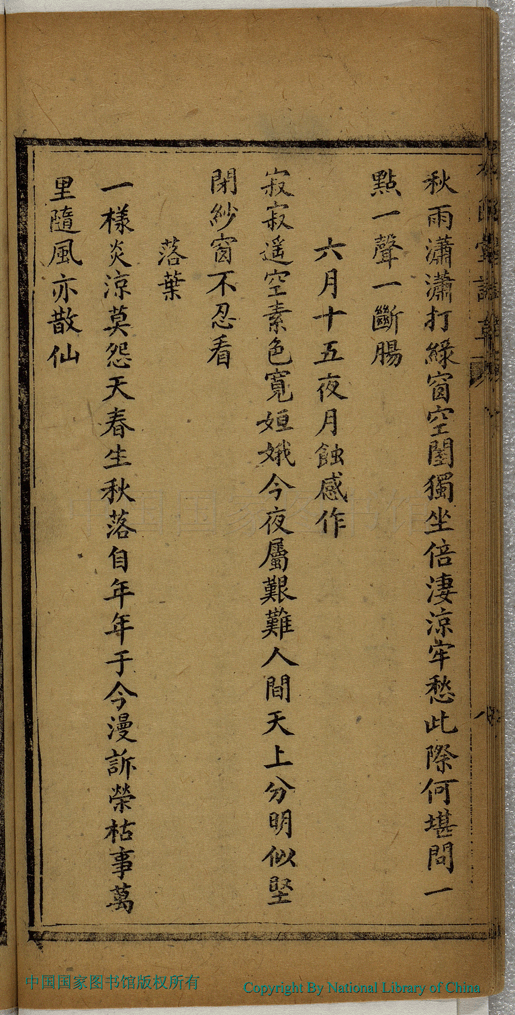 秋雨瀟瀟打綠窗空閨獨坐倍淒涼牢愁此際何堪問一
點一聲一斷腸
六月十五夜月蝕感作
寂寂遥空素色寬姮娥今夜屬艱難人間天上分明似堅
閉紗窗不忍看
落葉
一樣炎涼莫怨天春生秋落自年年于今漫訴榮枯事萬
里隨風亦散仙
中国国家图书馆版权所有
Copyright By National Library of China